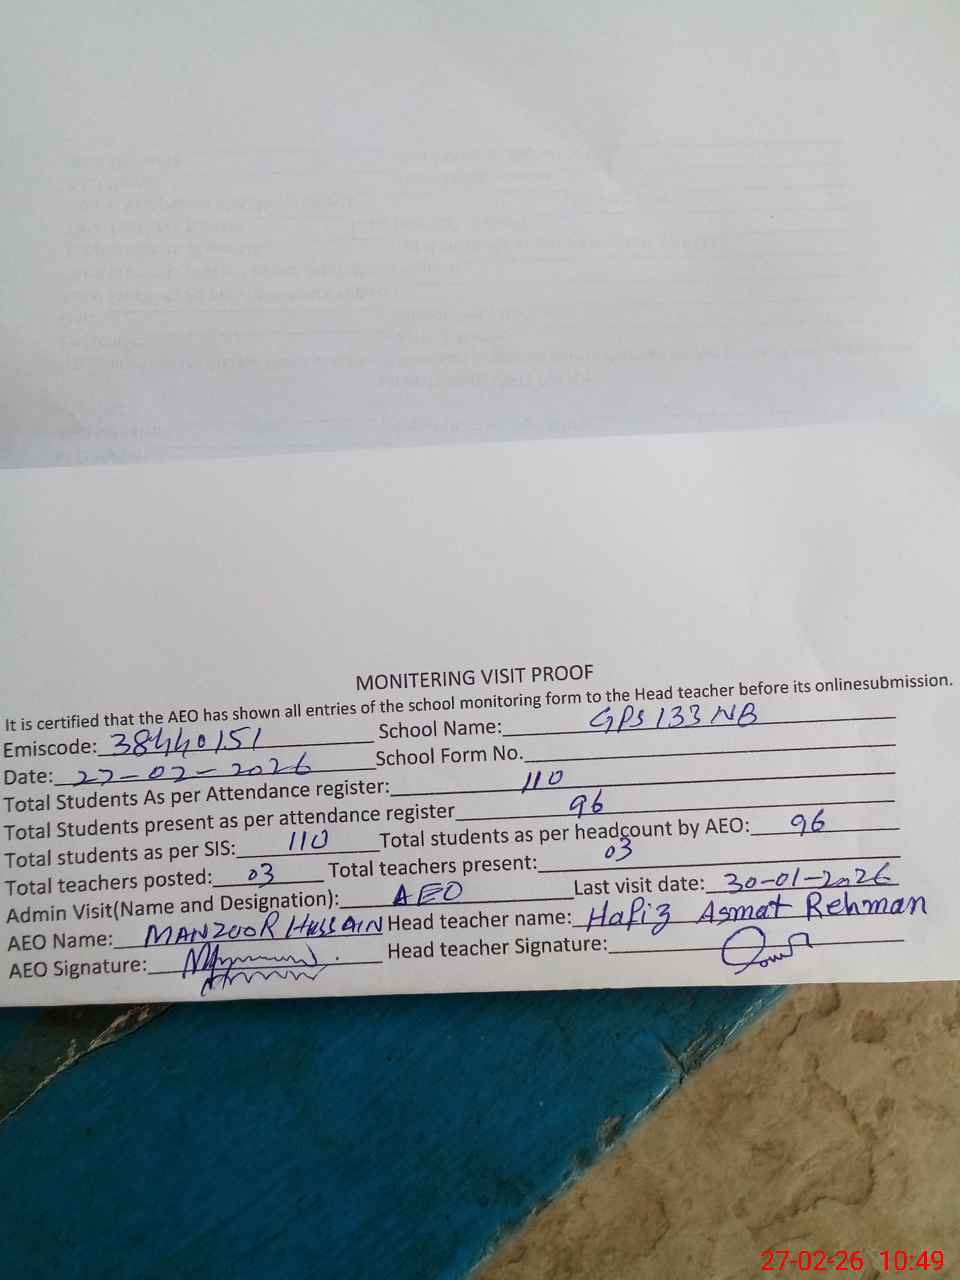 MONITERING VISIT PROOF
It is certified that the AEO has shown all entries of the school monitoring form to the Head teacher before its onlinesubmission.
Emiscode: 38440151 School Name: GPS 133 NB
Date: 27-02-2026 School Form No.
Total Students As per Attendance register: 110
Total Students present as per attendance register 96
Total students as per SIS: 110 Total students as per headcount by AEO: 96
Total teachers posted: 03 Total teachers present: 03
Admin Visit(Name and Designation): AEO Last visit date: 30-01-2026
AEO Name: MANZOOR HUSSAIN Head teacher name: Hafiz Asmat Rehman
AEO Signature: Head teacher Signature:
27-02-26 10:49